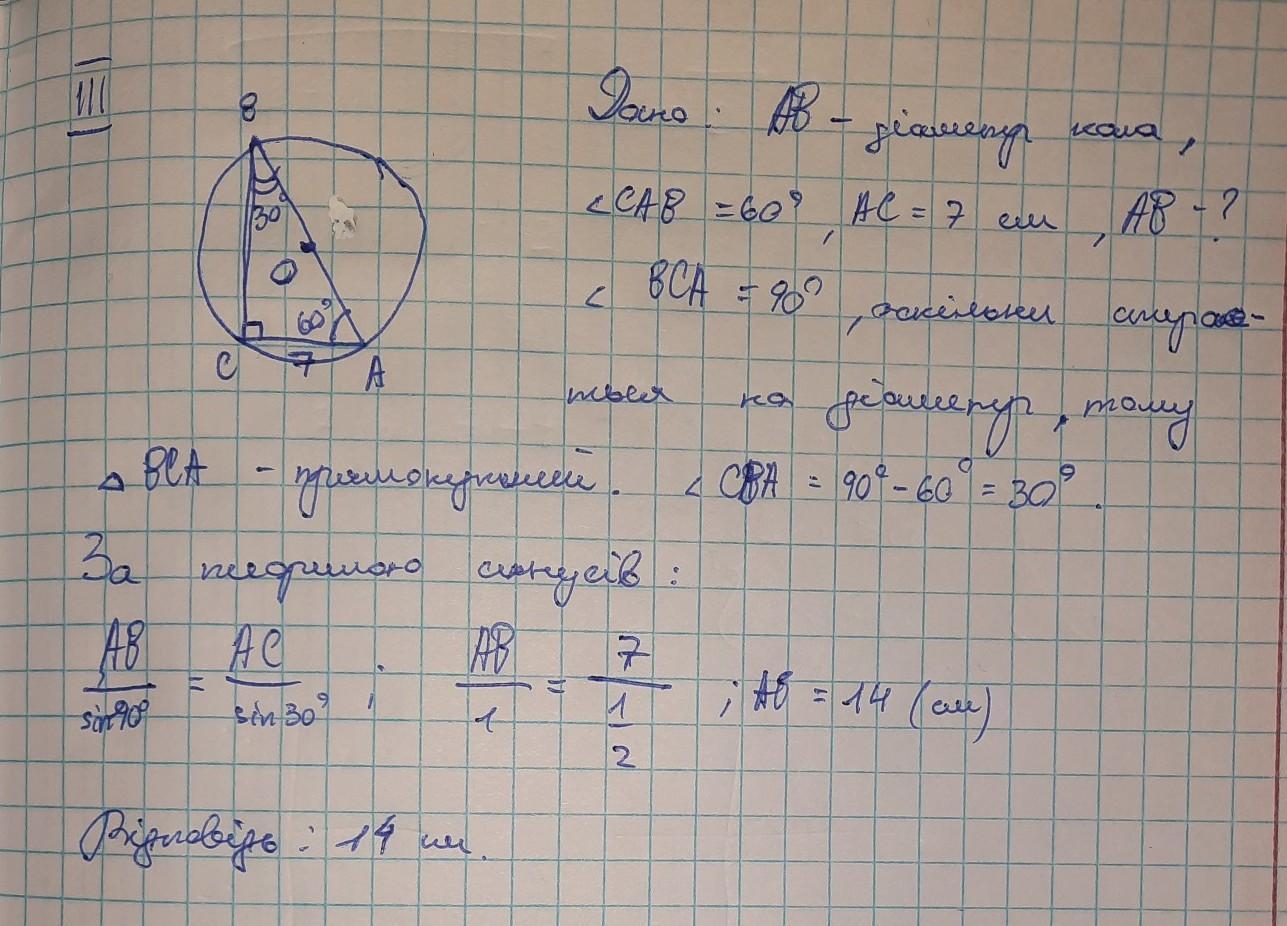 III
Дано: AB - діаметр кола,
∠CAB = 60°, AC = 7 см, AB - ?
∠ BCA = 90°, оскільки спирає-
ться на діаметр, тому
△ BCA - прямокутний. ∠ CBA = 90° - 60° = 30°.
За теоремою синусів:
AB/sin90° = AC/sin30° ; AB/1 = 7/(1/2) ; AB = 14 (см)
Відповідь: 14 см.
B
30°
O
60°
C 7 A